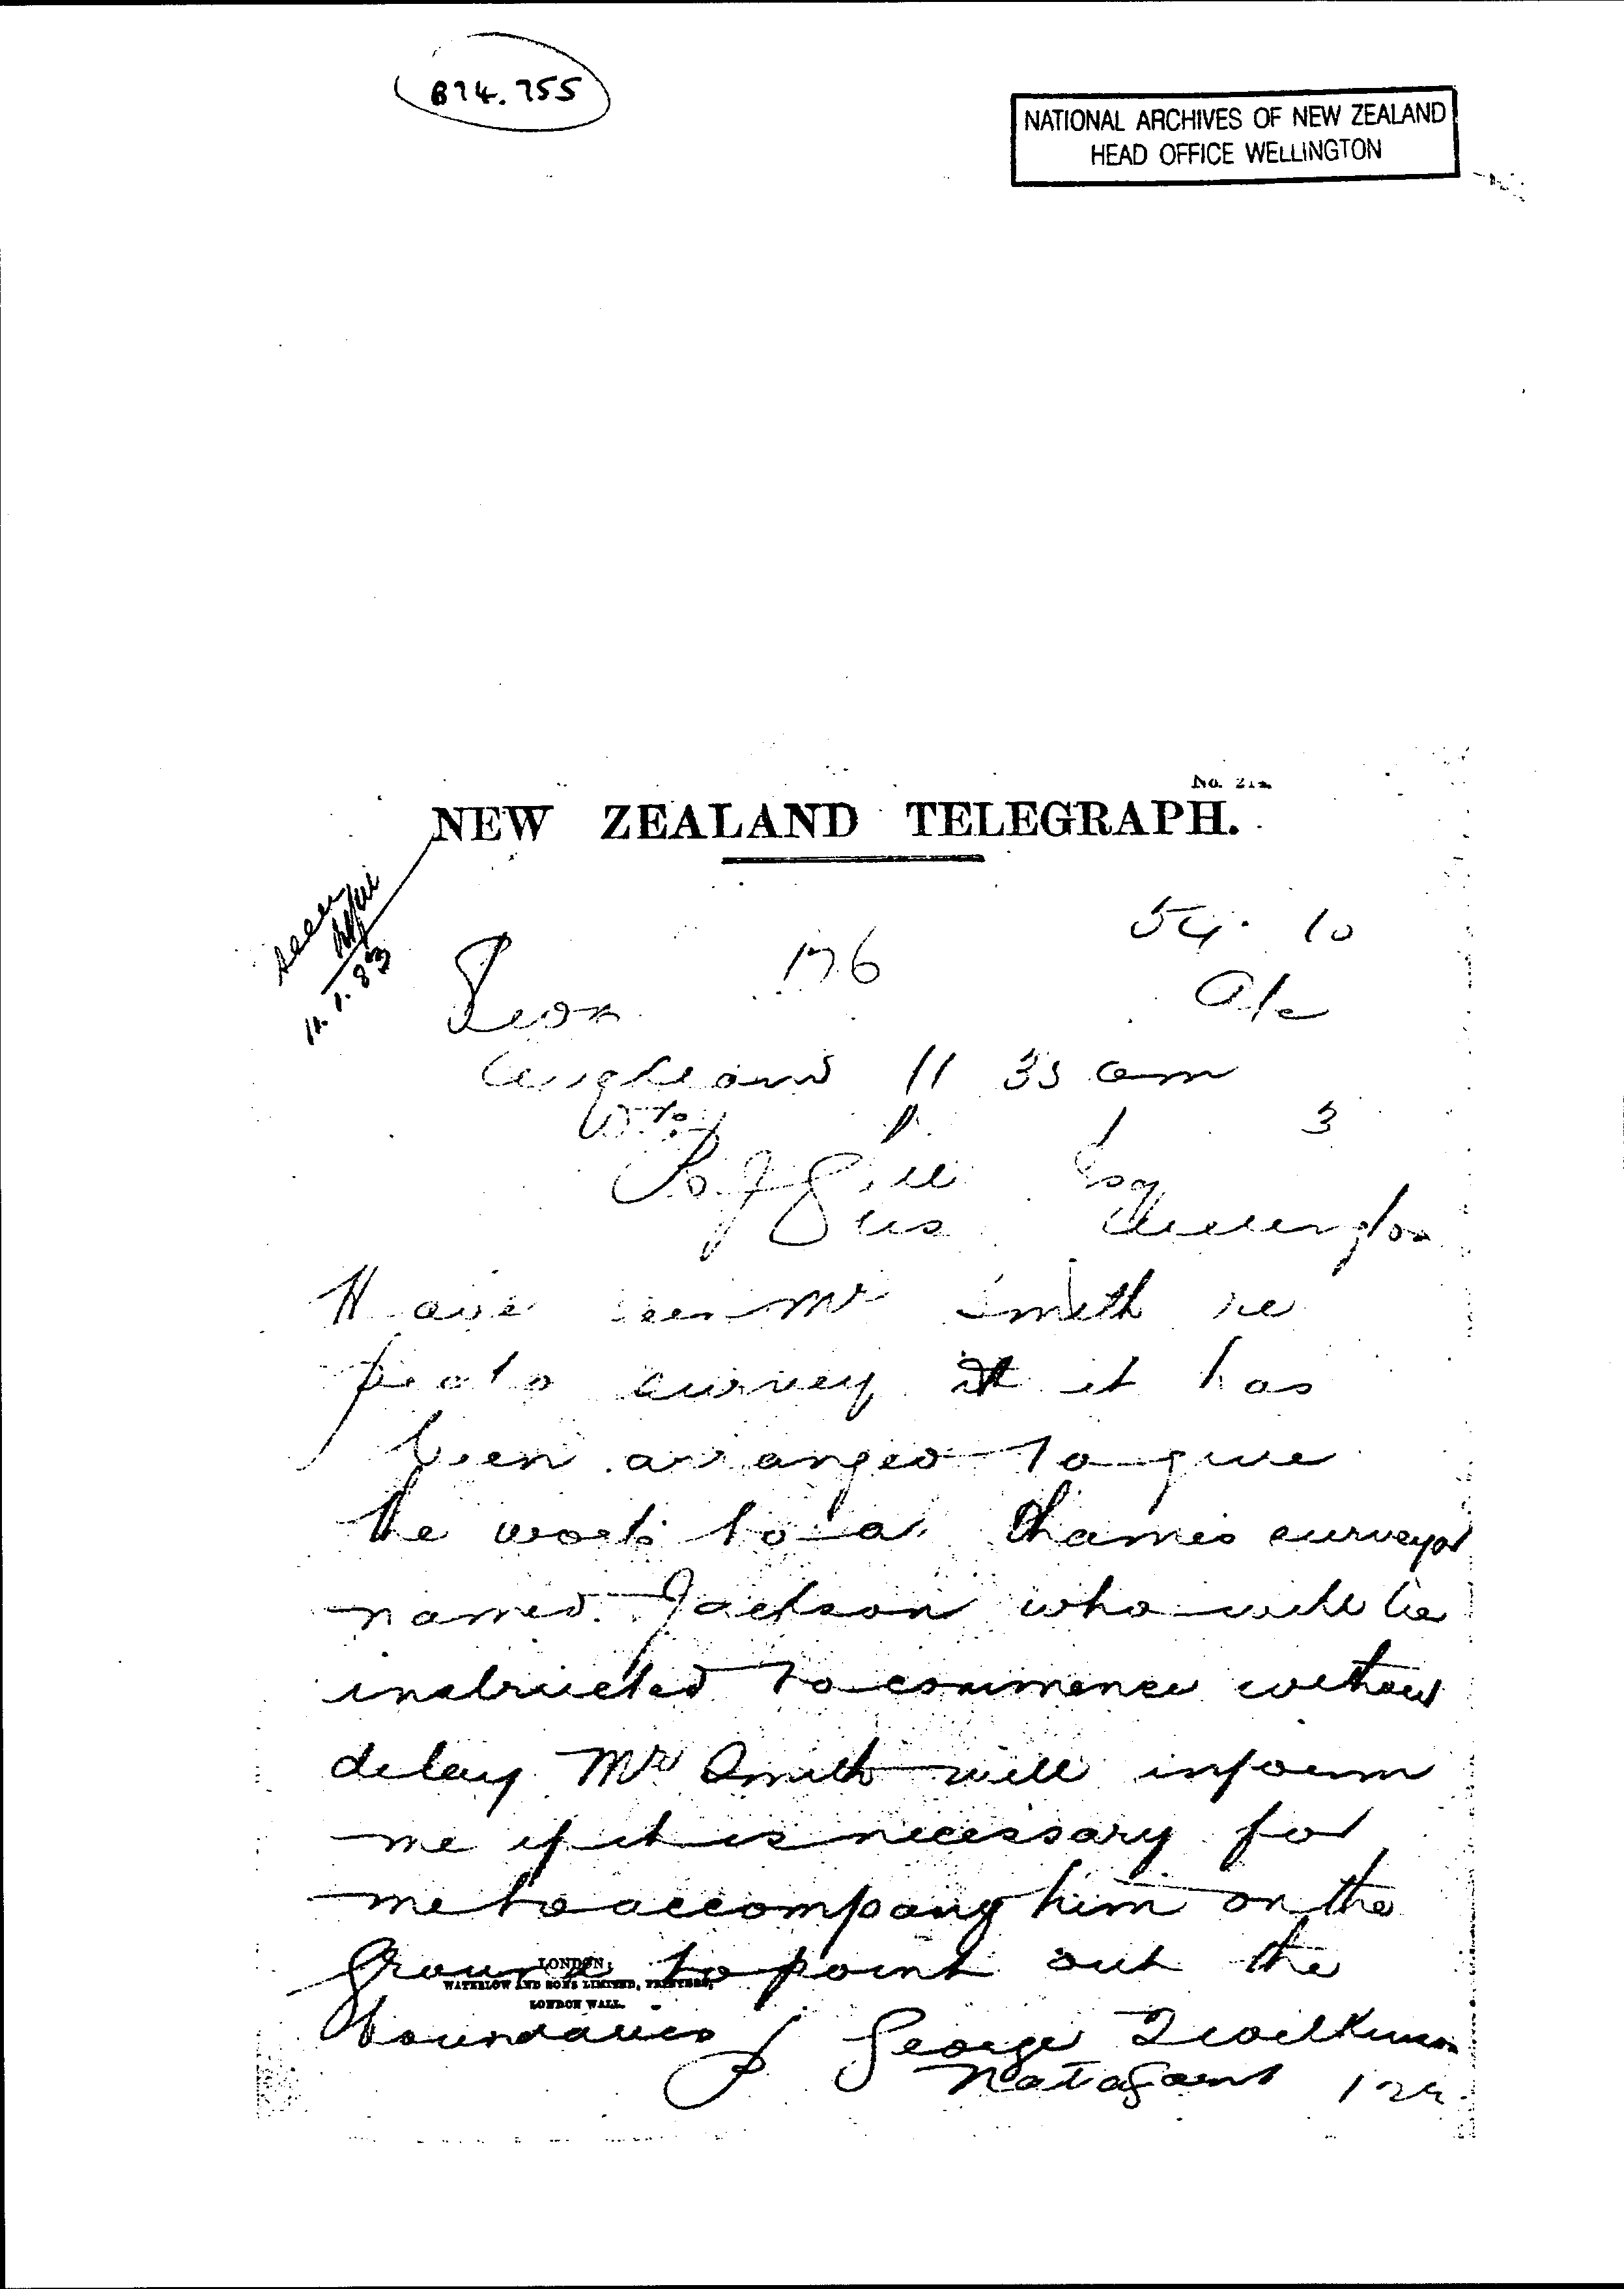 B74.755
NATIONAL ARCHIVES OF NEW ZEALAND
HEAD OFFICE WELLINGTON
No.
NEW ZEALAND TELEGRAPH.
seen
11.1.83
54. 10
176
Auckland 11 35 am
3
Gill Esq
Wellington
Have seen Mr Smith re
survey it has
been arranged to give
the work to a Thames surveyor
named Jackson who will be
instructed to commence without
delay Mr Smith will inform
me if it is necessary for
me to accompany him on the
ground to point out the
LONDON:
WATERLOW AND SONS LIMITED, PRINTERS,
LONDON WALL.
boundaries
George T Wilkinson